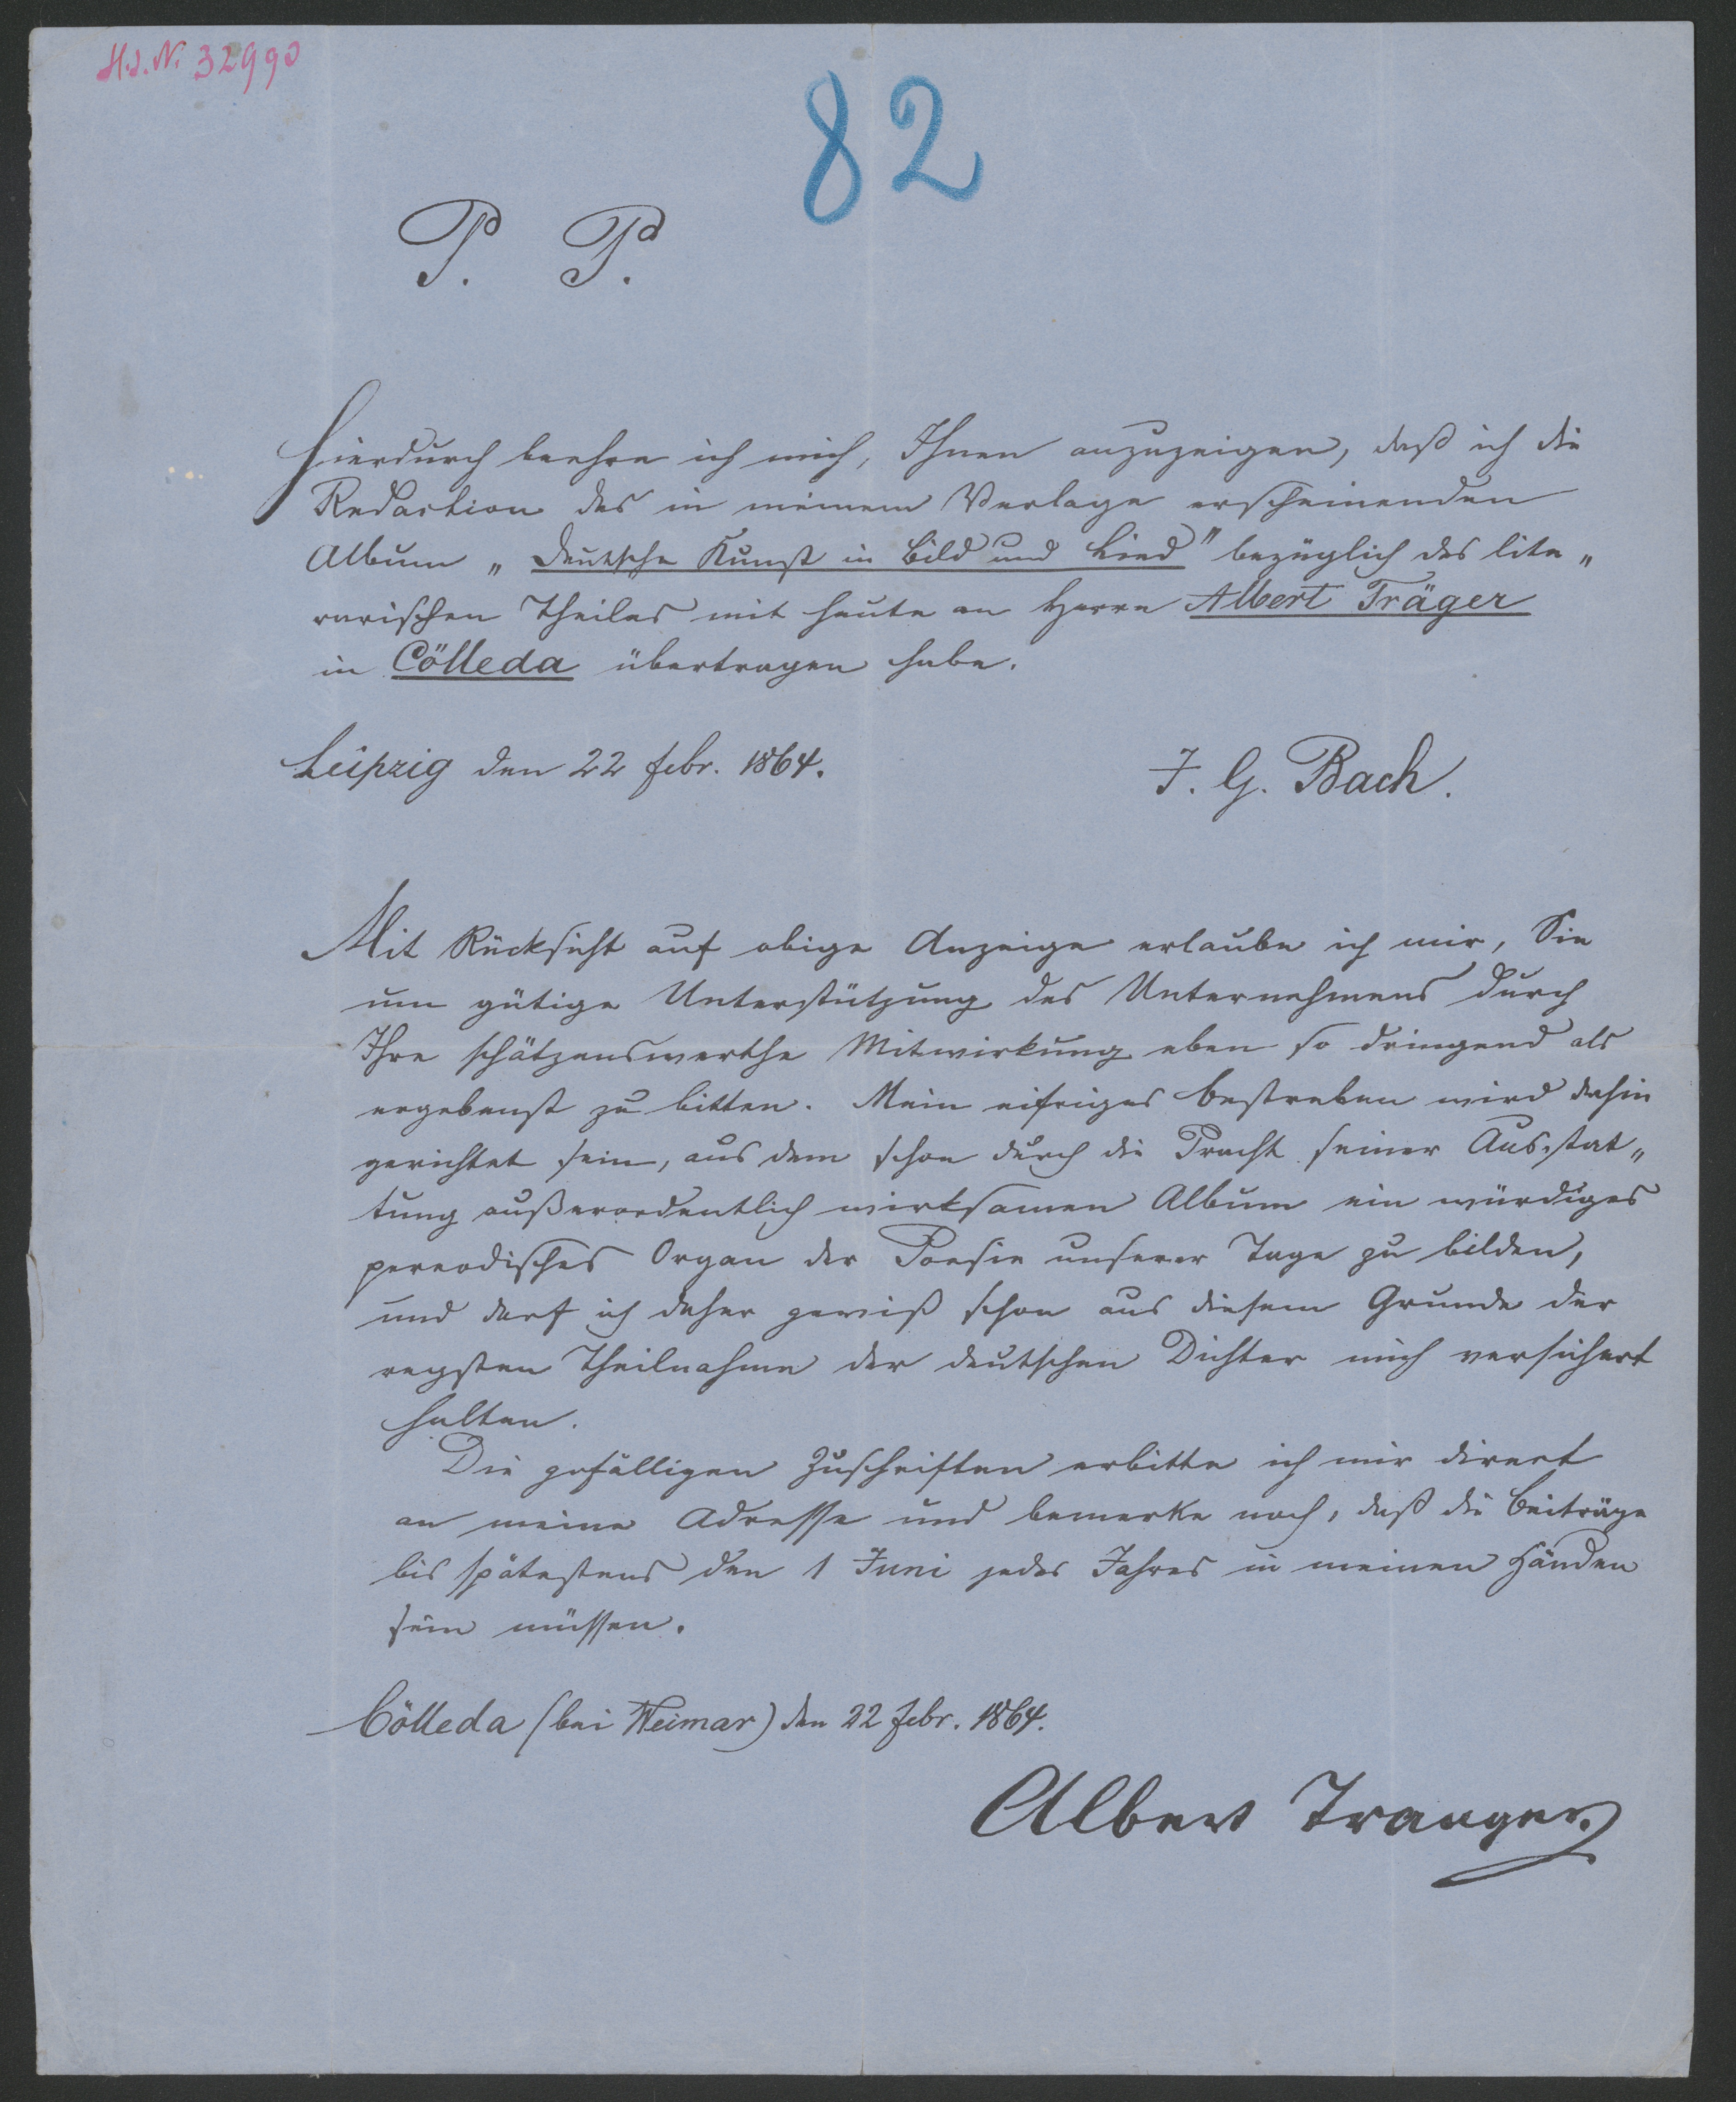 H.I.N. 32990
82
P. P.
Hierdurch beehre ich mich, Ihnen anzuzeigen, daß ich die
Redaction des in meinem Verlage erscheinenden
Album „Deutsche Kunst in Bild und Lied" bezüglich des lite„
rarischen Theiles mit heute an Herrn Albert Träger
in Cölleda übertragen habe.
Leipzig den 22 Febr. 1864.
J. G. Bach.
Mit Rücksicht auf obige Anzeige erlaube ich mir, Sie
um gütige Unterstützung des Unternehmens durch
Ihre schätzenswerthe Mitwirkung eben so dringend als
ergebenst zu bitten. Mein eifriges Bestreben wird dahin
gerichtet sein, aus dem schon durch die Pracht seiner Ausstat„
tung außerordentlich wirksamen Album ein würdiges
pereodisches Organ der Poesie unserer Tage zu bilden,
und darf ich daher gewiß schon aus diesem Grunde der
regsten Theilnahme der deutschen Dichter mich versichert
halten.
Die gefälligen Zuschriften erbitte ich mir direct
an meine Adresse und bemerke noch, daß die Beiträge
bis spätestens den 1 Juni jedes Jahres in meinen Händen
sein müssen.
Cölleda (bei Weimar) den 22 Febr. 1864.
Albert Traeger.